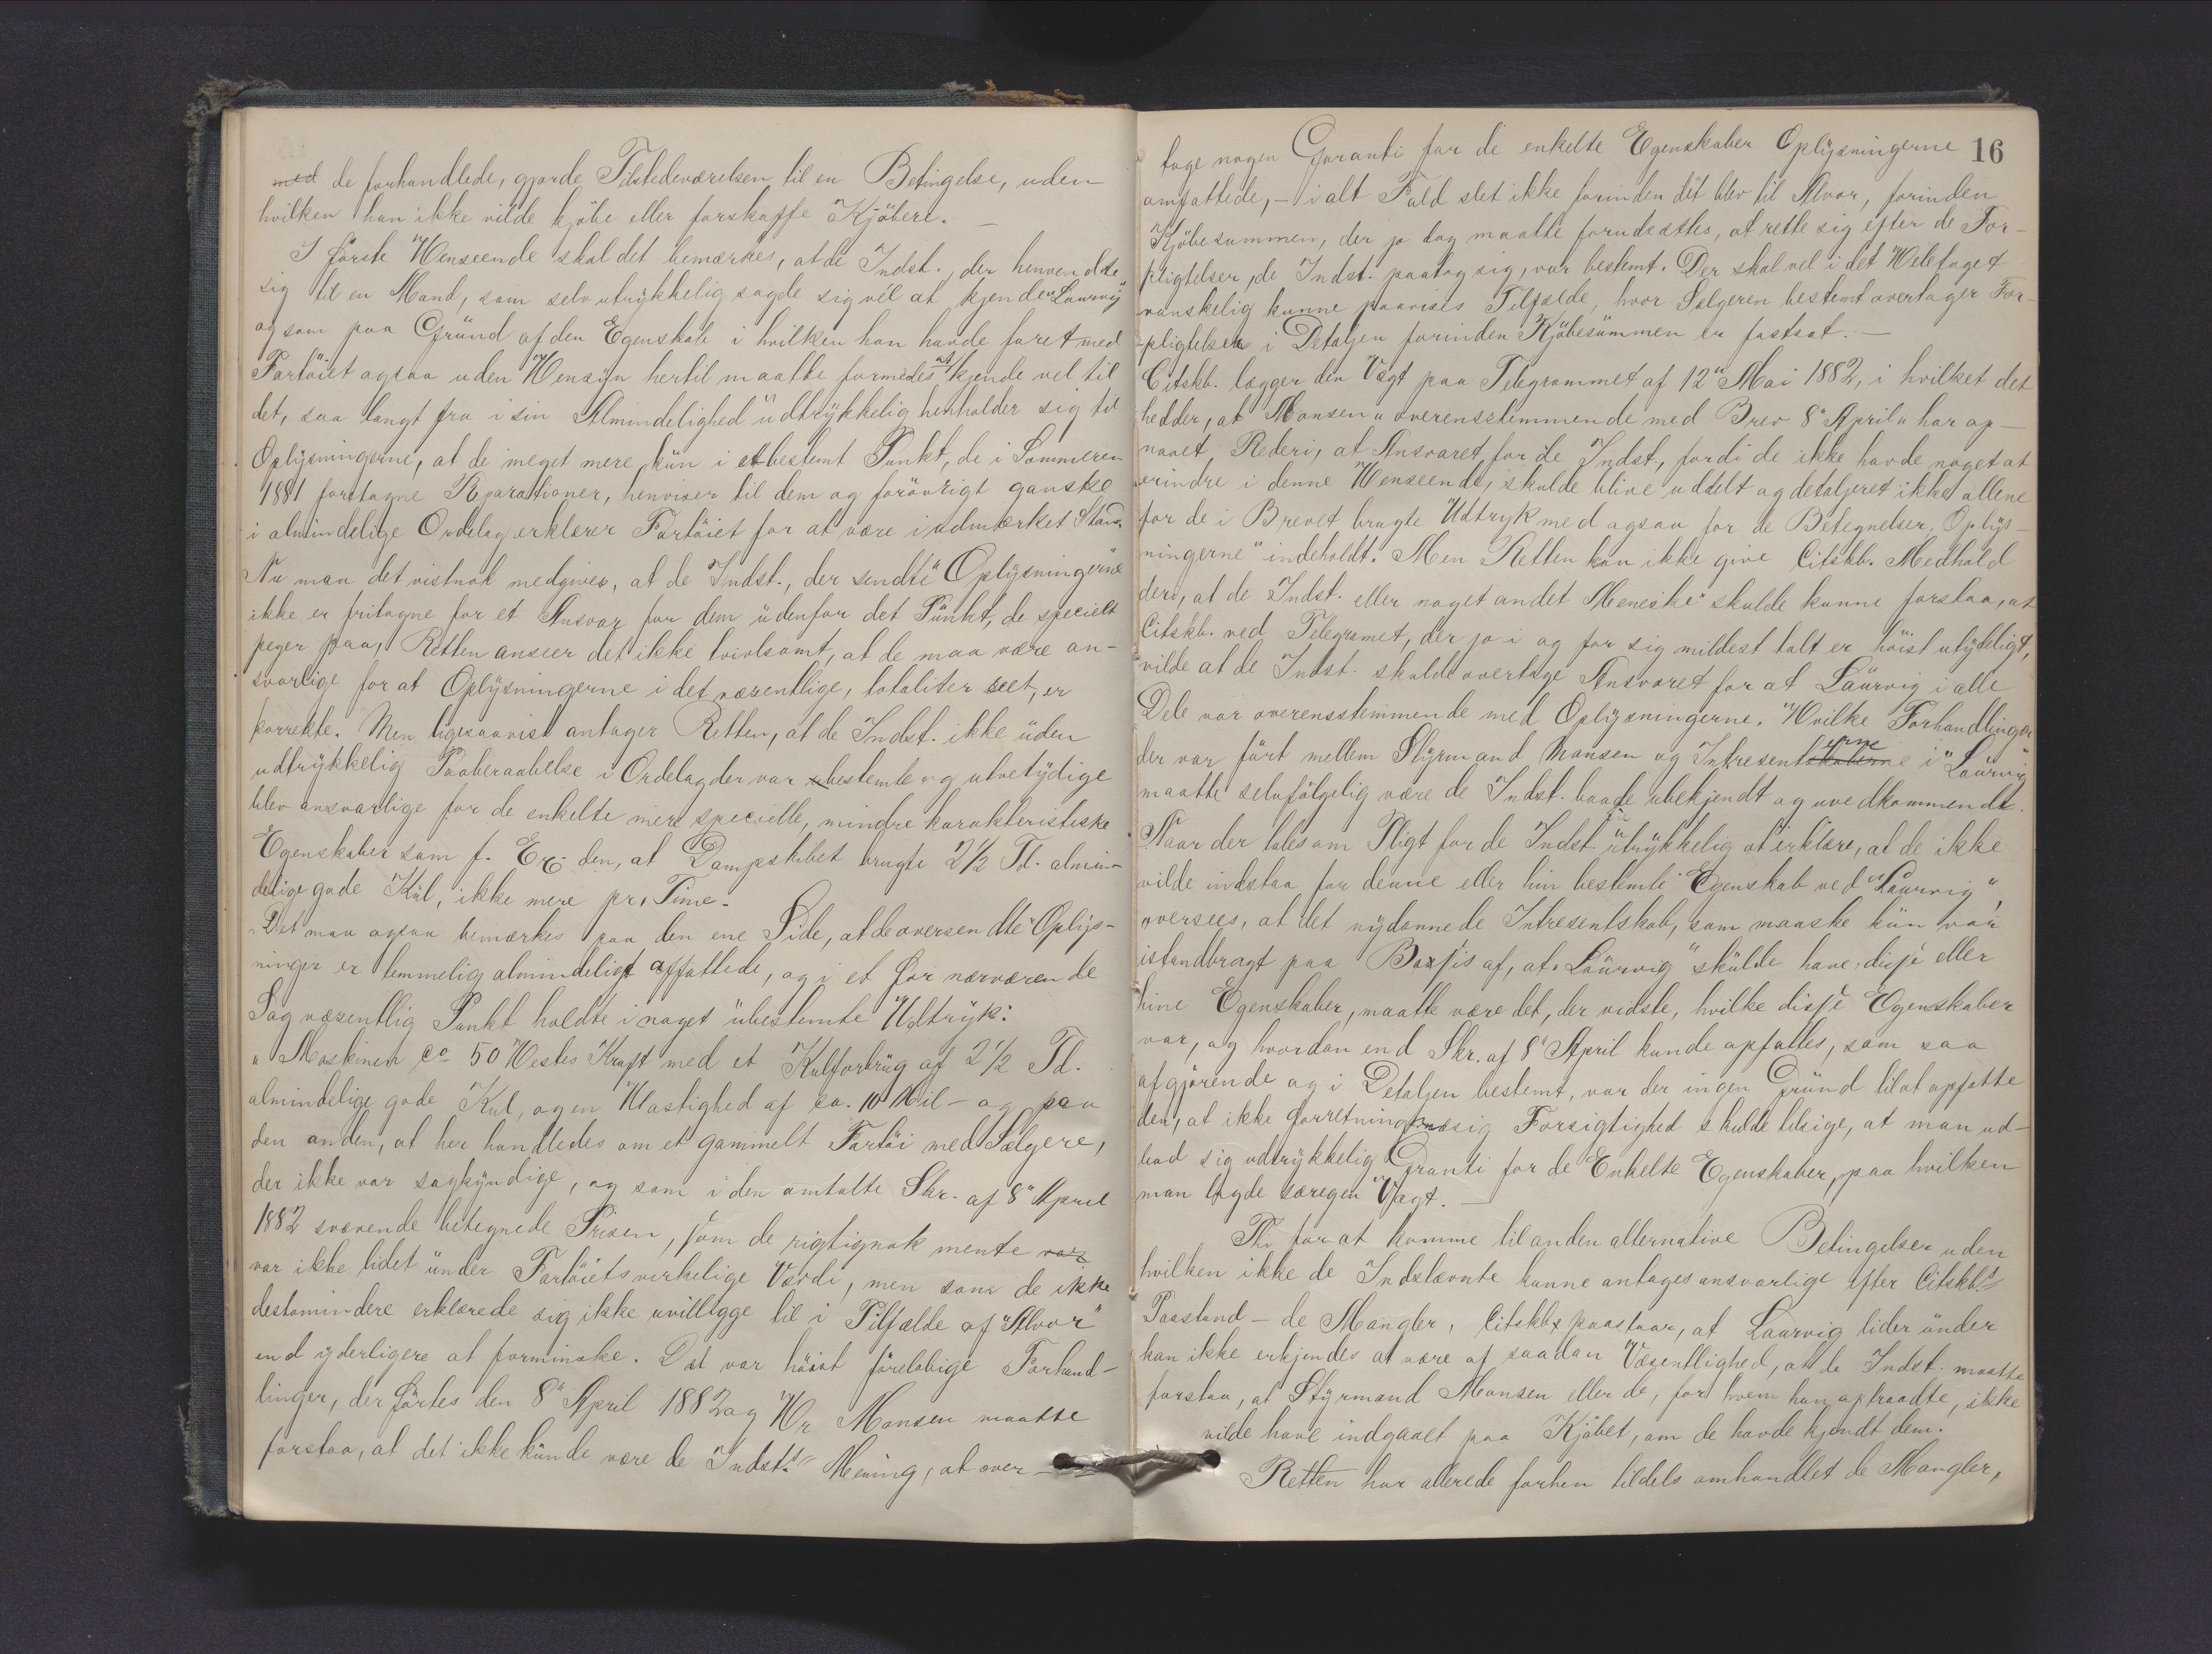 med de forhandlede, gjorde Tilstedeværelsen til en Betingelse, uden
hvilken han ikke vilde kjöbe eller forskaffe Kjöbere. —
I förste Henseende skal det bemærkes, at de Indst., der henvendte
sig til en Mand, som selv utrykkelig sagde sig vél at kjende "Laurvig"
og som paa Grund af den Egenskab i hvilken han havde faret med
Fartöiet ogsaa uden Hensyn hertil maatte formodes at kjende vel til
det, saa langt fra i sin Almindelighed udtrykkelig henholder sig til
Oplysningerne, at de meget mere kun i et bestemt Punkt, de i Sommeren
1881 foretagne Reparationer, henviser til dem og forövrigt ganske
i almindelige Ordelag erklærer Fartöiet for at være i udmærket Stand.
Nu maa det vistnok medgives, at de Indst., der sendte "Oplysningerne
ikke er fritagne for et Ansvar for dem udenfor det Punkt, de specielt
peger paa, Retten anseer det ikke tvivlsomt, at de maa være an-
svarlige for at Oplysningerne i det væsentlige, totaliter seet, er
korrekte. Men ligesaavist antager Retten, at de Indst. ikke uden
udtrykkelig Paaberaabelse i Ordelag der var ubestemte og utvetydige
blev ansvarlige for de enkelte mere specielle, mindre karakteristiske
Egenskaber som f. Ex. den, at Dampskibet brugte 2½ Td. almin-
delige gode Kul, ikke mere pr. Time.
Det maa ogsaa bemærkes paa den ene Side, at de oversendte "Oplys-
ninger er temmelig almindeligt affattede, og i et for nærværende
Sag væsentlig Punkt holdte i noget ubestemte Udtryk:
"Maskinen co 50 Hestes Kraft med et Kulforbrug af 2½ Td.
almindelige gode Kul, og en Hastighed af ca. 10 Mil — og paa
den anden, at her handledes om et gammelt Fartöi med Sælgere,
der ikke var sagkyndige, og som i den omtalte Skr. af 8" April
1882 svævende betegnede Prisen, som de rigtignok mente var
var ikke lidet under Fartöiets virkelige Værdi, men som de ikke
destomindere erklærede sig ikke uvilligge til i Tilfælde af "Alvor"
end yderligere at forminske. Det var höist foreløbige Forhand-
linger, der førtes den 8" April 1882 og Hr Monsen maatte
forstaa, at det ikke kunde være de Indsts Mening, at over-
16
tage nogen Garanti for de enkelte Egenskaber Oplysningerne
omfattede, — i alt Fald slet ikke forinden det blev til Alvor, forinden
Kjöbesummen, der jo dog maatte forudsættes, at rette sig efter de For-
pligtelser, de Indst. paatog sig, var bestemt. Der skal vel i det Heletaget
vanskelig kunne paavises Tilfælde, hvor Sælgeren bestemt overtager For-
pligtelser i Detaljen forinden Kjöbesummen er fastsat. —
Citskb. lægger den Vægt paa Telegrammet af 12" Mai 1882, i hvilket det
hedder, at Monsen "overensstemmende med Brev 8" April" har op-
naaet Rederi, at Ansvaret for de Indst., fordi de ikke havde noget at
erindre i denne Henseende, skulde blive uddelt og detaljeret ikke allene
for de i Brevet brugte Udtryk med ogsaa for de Betegnelser, Oplys-
ningerne" indeholdt. Men Retten kan ikke give Citskb. Medhold
deri, at de Indst. eller noget andet Meneske skulde kunne forstaa, at
Citskb. ved Telegramet, der jo i og for sig mildest talt er höist utydeligt,
vilde at de Indst. skulde overtage Ansvaret for at Laurvig i alle
Dele var overensstemmende med Oplysningerne. Hvilke Forhandlinger
der var fört mellem Styrmand Monsen og Intresentskaberne erne i "Laurvig"
maatte selvfölgelig være de Indst. baade ubekjendt og uvedkommende.
Naar der tales om Pligt for de Indst. utrykkelig at erklære, at de ikke
vilde indstaa for denne eller hin bestemte Egenskab ved "Laurvig",
oversees, at det nydannede Intresentskab, som maaske kun var
istandbragt paa Basis af, at "Laurvig" skulde have disse eller
hine Egenskaber, maatte være det, der vidste, hvilke disse Egenskaber
var, og hvordan end Skr. af 8" April kunde opfattes, som saa
afgjörende og i Detaljen bestemt, var der ingen Grund til at opfatte
den, at ikke forretningsmæsig Forsigtighed skulde tilsige, at man ud-
bad sig udtrykkelig Granti for de Enkelte Egenskaber, paa hvilken
man lagde særegen Vægt. —
Thi for at komme til anden alternative Betingelser uden
hvilken ikke de Indstevnte kunne antages ansvarlige efter Citskbs
Paastand — de Mangler, Citskb. paastaar, at Laurvig lider under
kan ikke erkjendes at være af saadan Væsentlighed, at de Indst. maatte
forstaa, at Styrmand Monsen eller de, for hvem han optraadte, ikke
vilde have indgaaet paa Kjöbet, om de havde kjendt dem.
Retten har allerede forhen tildels omhandlet de Mangler,